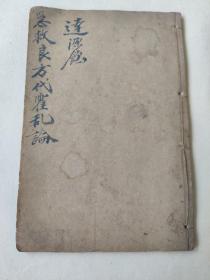 急救良方代霍乱論
达源飽